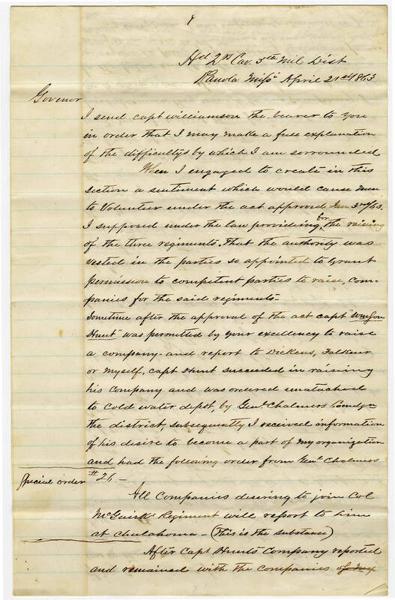 Hd 2nd Cav. 5th Mil Dist
Panola Missi April 21st 1863
Govenor
I send capt Williamson the bearer to you
in order that I may make a full explanation
of the difficultys by which I am sorrounded
When I engaged to create in this
section a sentiment which would cause men
to Volunteer under the act approved Jan 3rd /63.
I supposed under the law providing for the raising
of the three regiments. That the authority was
vested in the parties so appointed to Grant
permission to competent parties to raise, Com-
panies for the said regiments-
Sometime after the approval of the act capt
Hunt was permitted by your excellency to raise
a company- and report to Dickens, Falkner
or myself, capt Hunt succeeded in raising
his company and was ordered unattached
to Cold water depot, by Genl Chalmers Comdg
the district, subsequently I received information
of his desire to become a part of my organization
and had the following order from Genl Chalmers
Special order # 26 -
All Companies desiring to join Col
McGuirk Regiment will report to him
at chulahoma - (This is the substance)
After Capt Hunts Company reported
and remained with the companies